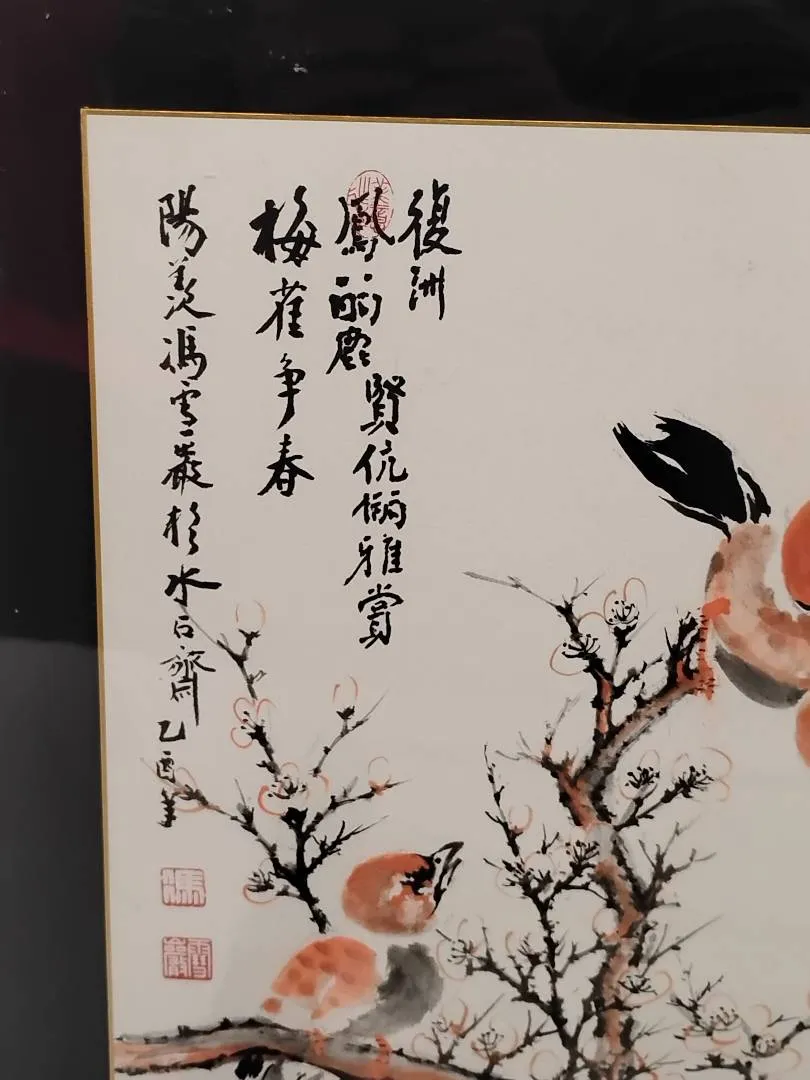 復洲
鳳麗賢伉俪雅賞
梅雀争春
陽羨馮雪巖於水石齋乙酉年
馮
雪巖